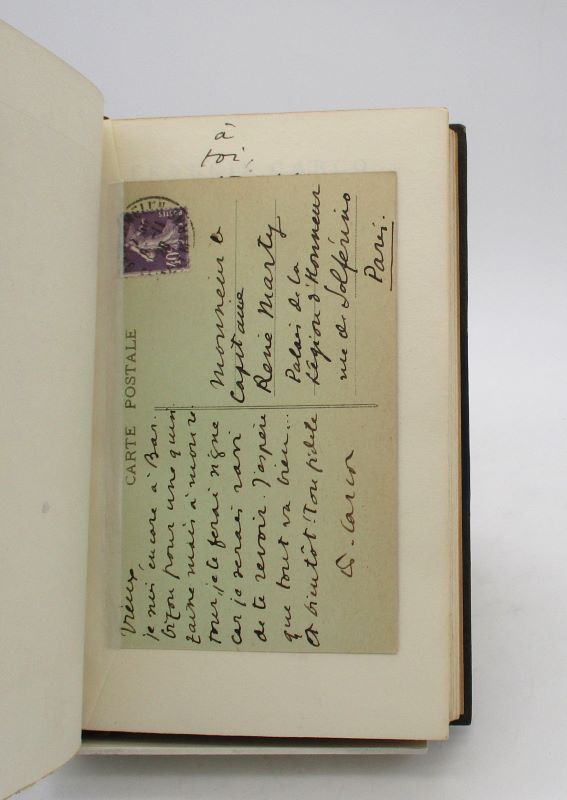 à
toi,
CARCO
CARTE POSTALE
40c
POSTES
Vieux
je suis encore à Bar-
bizon pour une quin-
zaine mais à mon re-
tour, je te ferai signe
car je serais ravi
de te revoir. J'espère
que tout va bien...
et bientôt. Ton fidèle
F. Carco
Monsieur le
Capitaine
René Marty
Palais de la
Légion d'Honneur
rue de Solférino
Paris.